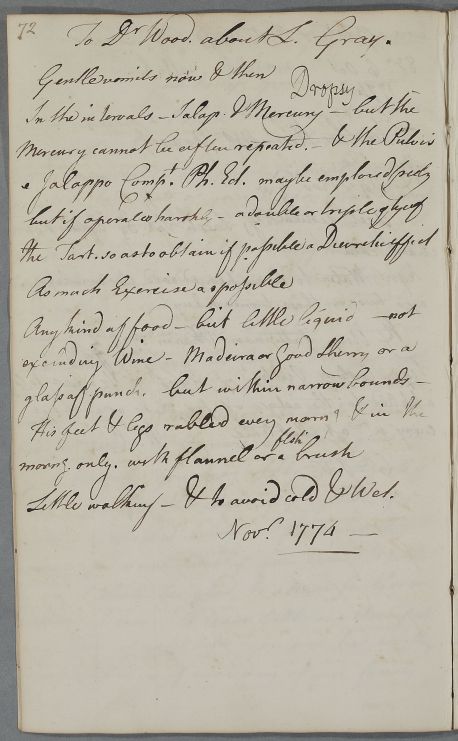 72
To Dr Wood. about L. Gray.
Gentle vomits now & then
Dropsy
In the intervals - Jalap & Mercury - but the
Mercury cannot be often repeated. - & the Pulvis
e Jalappo Compt. Ph. Ed. may be employed freely
but if operates harshly - a double or triple qty of
the Tart. so as to obtain if possible a Diuretic effect
As much Exercise as possible
Any kind of food - but little liquid - not
excluding Wine - Madeira or Good Sherry or a
glass of punch. but within narrow bounds -
His feet & legs rubbed every morng & in the
flesh
morng. only. with flannel or a brush
Little walking - & to avoid cold & Wet.
Novr. 1774 -